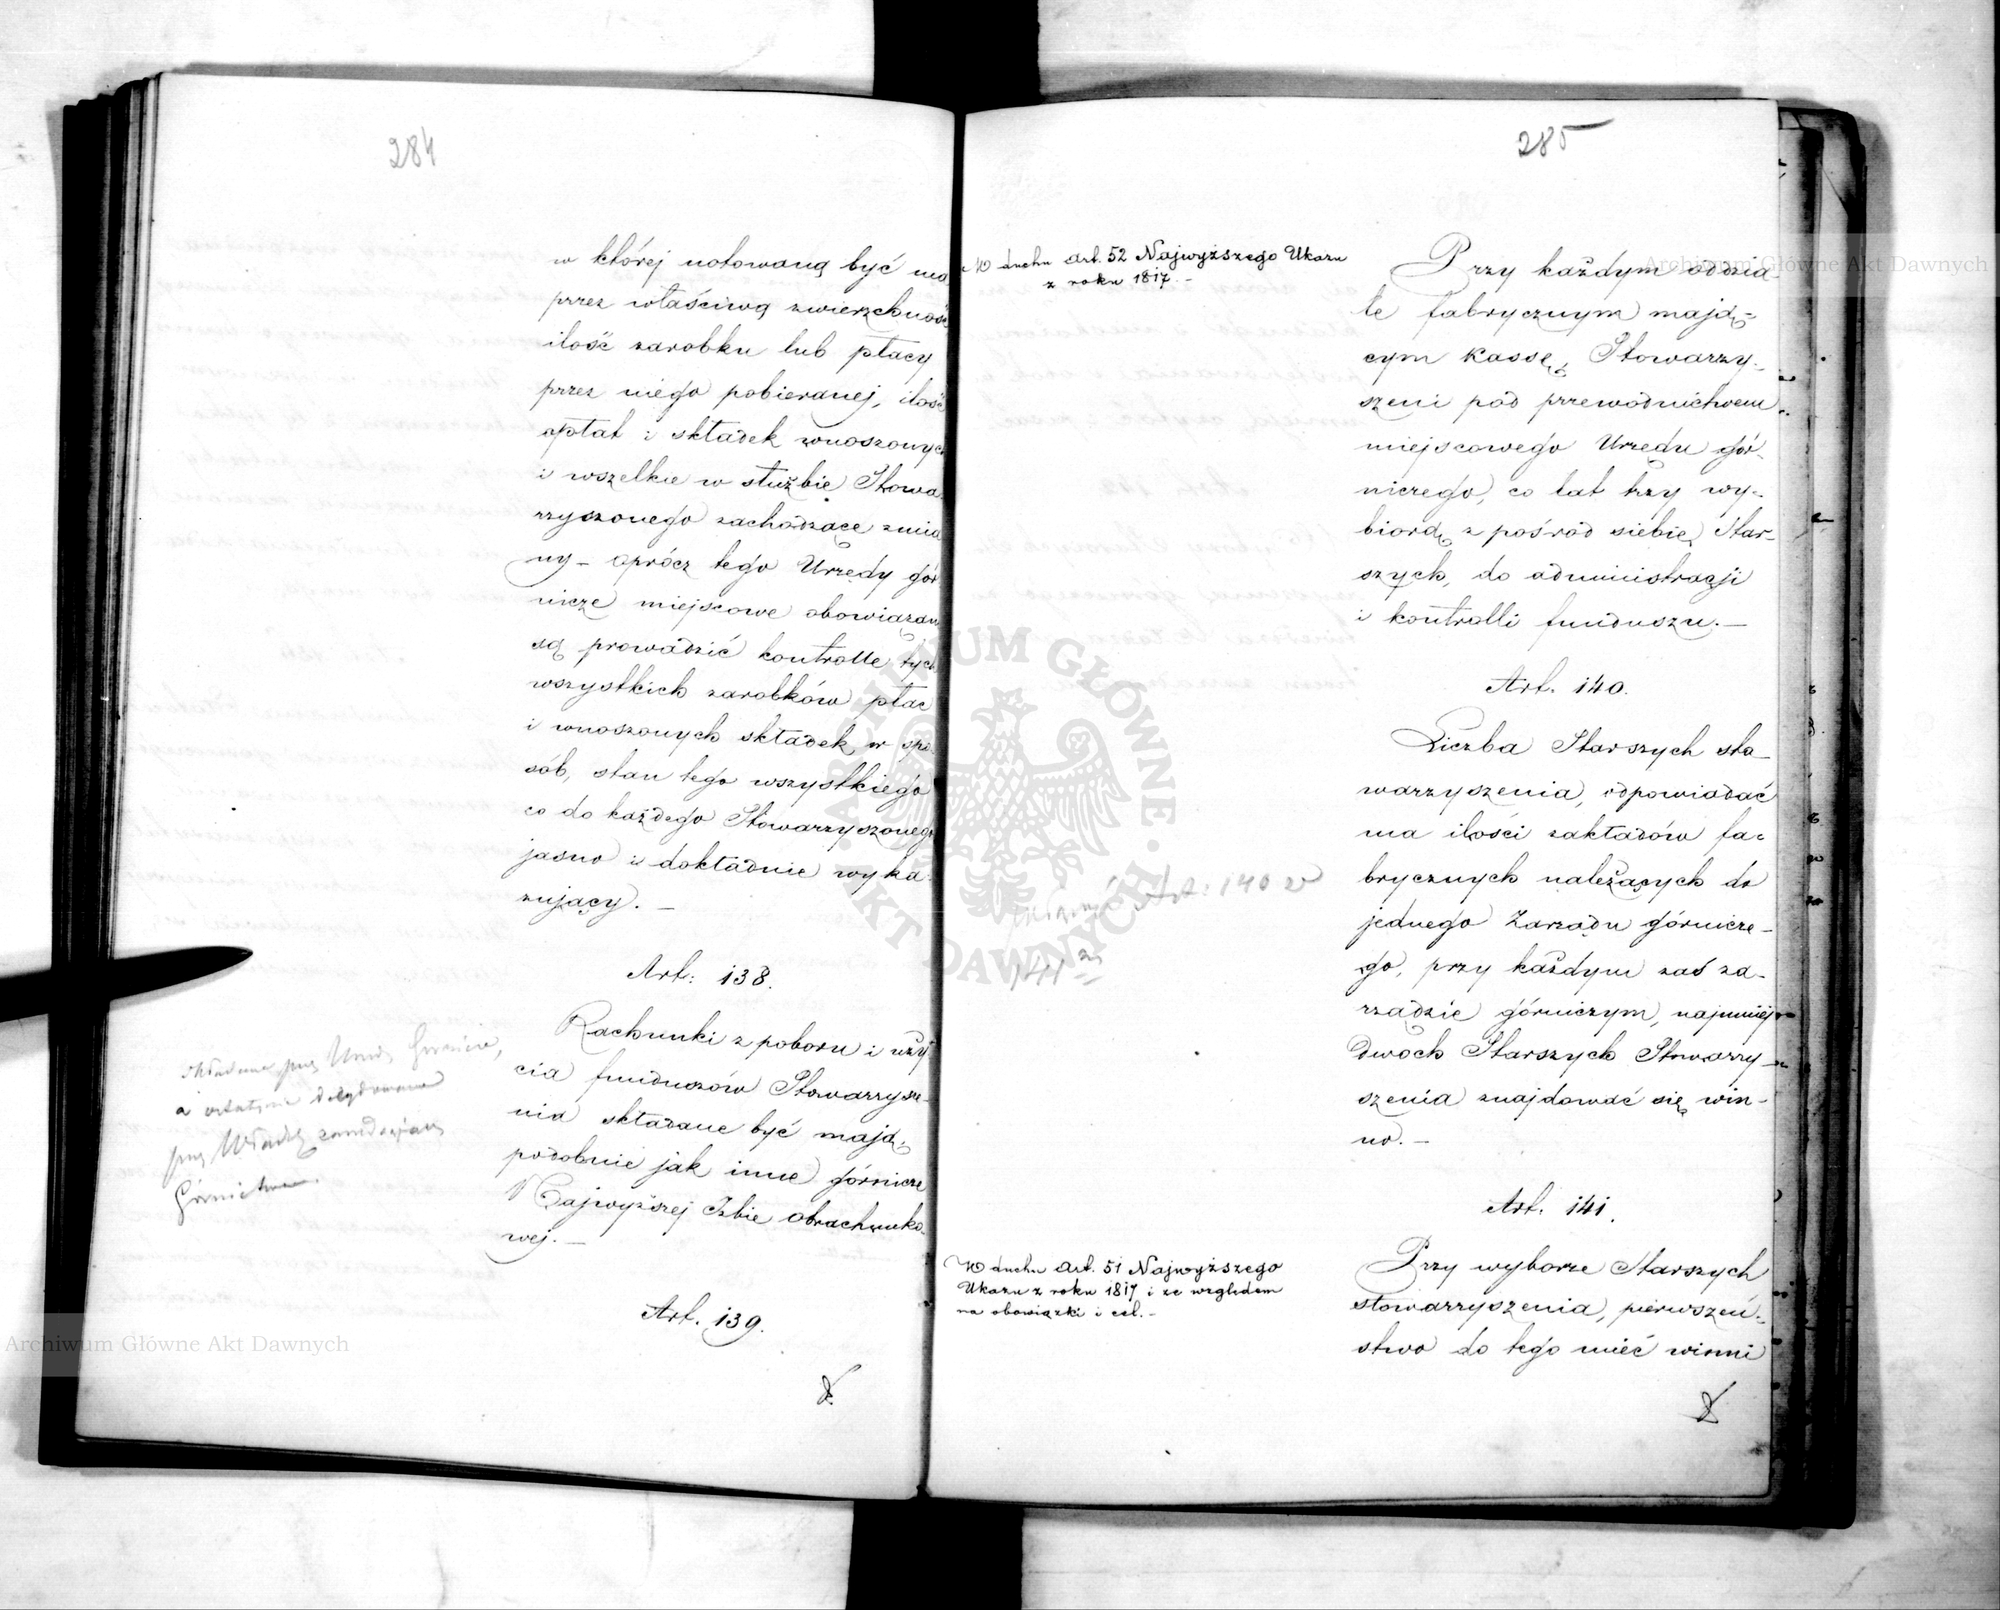 284
w której notowaną być ma
przez właściwą zwierzchność
ilość zarobku lub płacy
przez niego pobieranej, ilość
opłat i składek wnoszonych
i wszelkie w służbie Stowa
rzyszonego zachodzące zmia
ny – oprócz tego Urzędy gór
nicze miejscowe obowiązane
są prowadzić kontrolle tych
wszystkich zarobków płac
i wnoszonych składek w spo
sób, stan tego wszystkiego
co do każdego Stowarzyszonego
jasno i dokładnie wyka
zujący. –
Art: 138.
Rachunki z poboru i uży
cia funduszów Stowarzysze-
nia składane być mają
podobnie jak inne górnicze
Najwyższej Izbie Obrachunko
wej. –
składane przez Urzędy Górnicze,
a ostatecznie decydowane
przez Władzę zarządzającą
Górnictwem.
Art. 139.
285
W duchu Art. 52 Najwyższego Ukazu
z roku 1817. –
Przy każdym oddzia
le fabrycznym mają-
cym kassę, Stowarzy-
szeni pod przewodnictwem
miejscowego Urzędu gór-
niczego, co lat trzy wy-
biorą z pośród siebie Star-
szych, do administracji
i kontrolli funduszu. –
Art. 140.
Liczba Starszych sto-
warzyszenia, odpowiadać
ma ilości zakładów fa-
brycznych należących do
jednego Zarządu górnicze-
go, przy każdym zaś za-
rządzie górniczym, najmniej
dwóch Starszych Stowarzy-
szenia znajdować się win-
no. –
Art: 140
141
Art. 141.
W duchu Art. 51 Najwyższego
Ukazu z roku 1817 i ze względem
na obowiązki i cel. –
Przy wyborze Starszych
stowarzyszenia, pierwszeń-
stwo do tego mieć winni
ARCHIWUM GŁÓWNE
AKT DAWNYCH
Archiwum Główne Akt Dawnych
Archiwum Główne Akt Dawnych